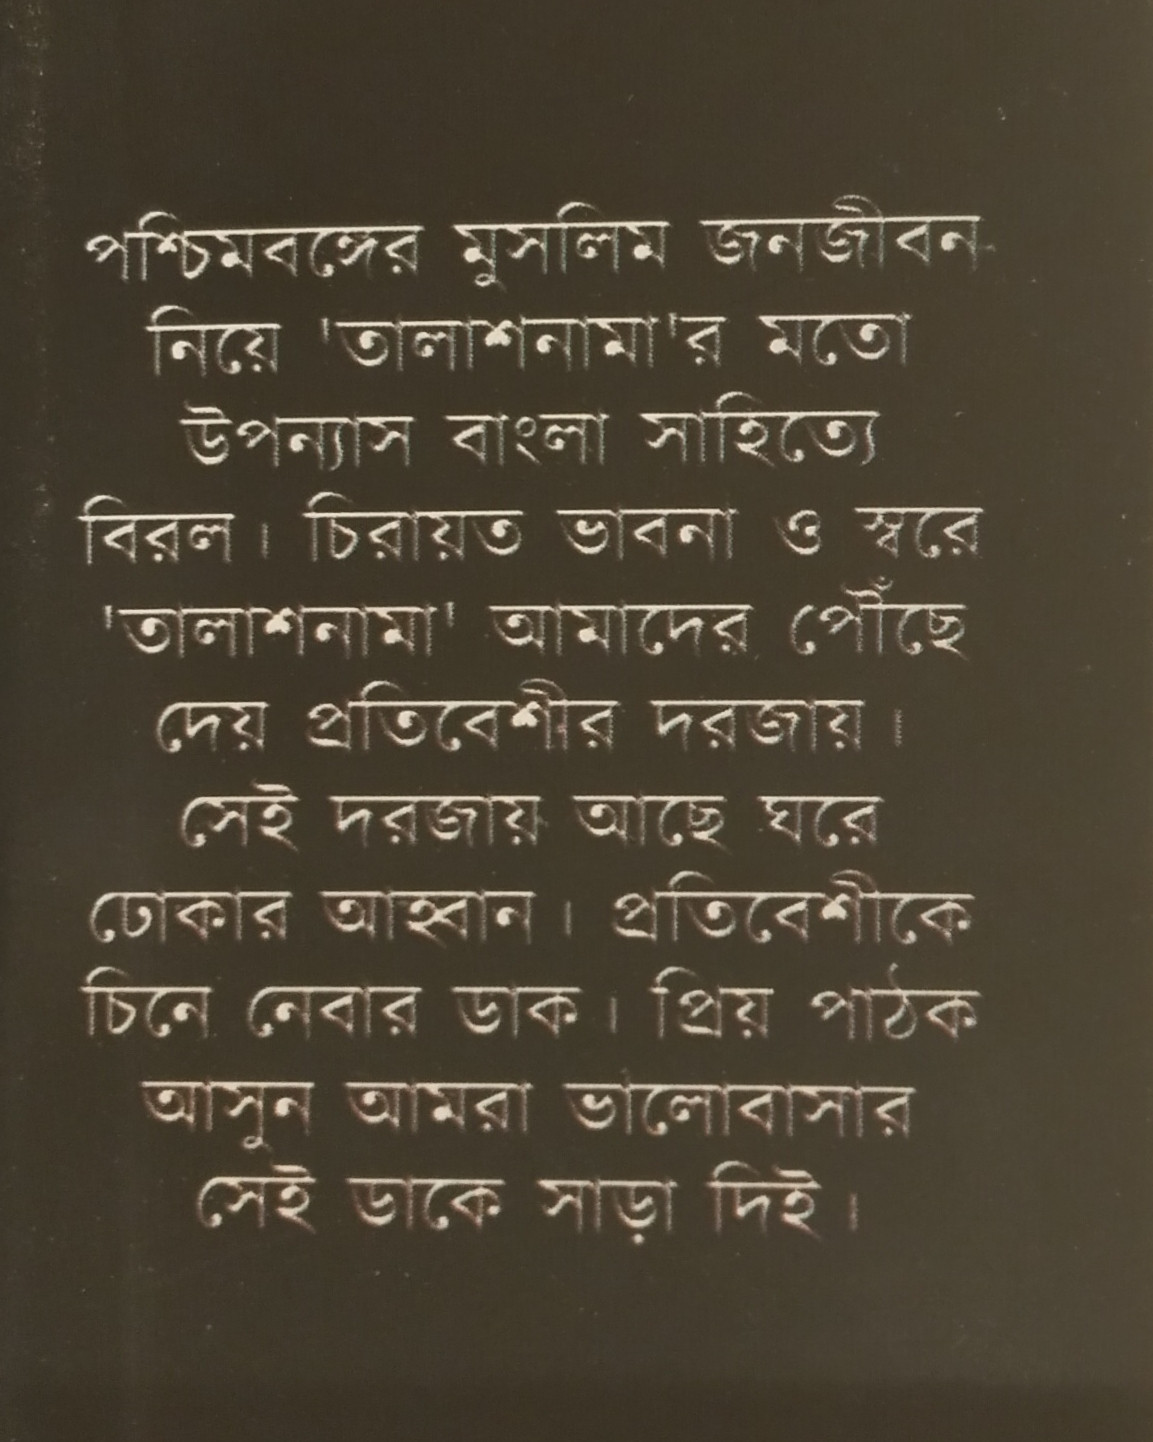 পশ্চিমবঙ্গের মুসলিম জনজীবন
নিয়ে 'তালাশনামা'র মতো
উপন্যাস বাংলা সাহিত্যে
বিরল। চিরায়ত ভাবনা ও স্বরে
'তালাশনামা' আমাদের পৌঁছে
দেয় প্রতিবেশীর দরজায়।
সেই দরজায় আছে ঘরে
ঢোকার আহ্বান। প্রতিবেশীকে
চিনে নেবার ডাক। প্রিয় পাঠক
আসুন আমরা ভালোবাসার
সেই ডাকে সাড়া দিই।